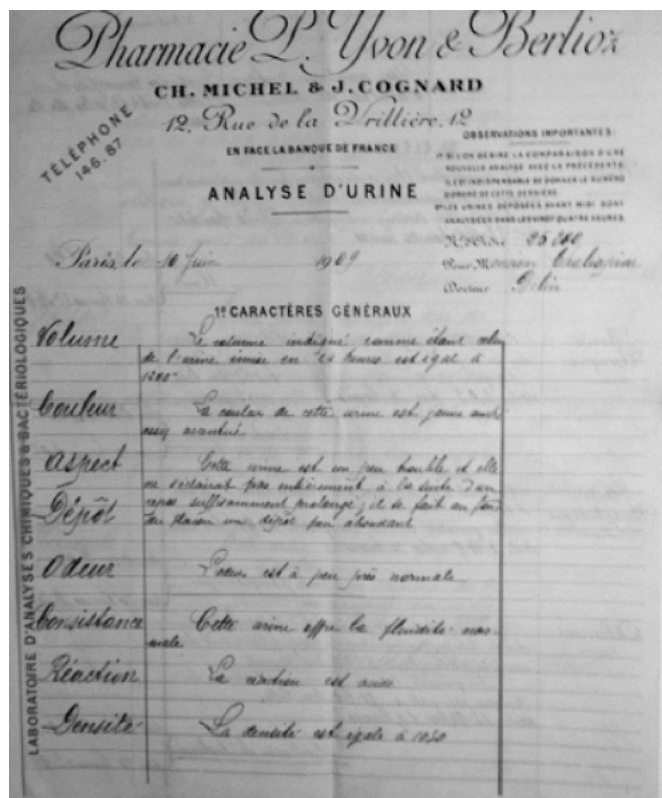 Pharmacie P. Yvon & Berlioz
CH. MICHEL & J. COGNARD
12, Rue de la Vrillière, 12
TÉLÉPHONE
146.87
EN FACE LA BANQUE DE FRANCE
OBSERVATIONS IMPORTANTES:
1º SI L'ON DÉSIRE LA COMPARAISON D'UNE
NOUVELLE ANALYSE AVEC LA PRÉCÉDENTE
IL EST INDISPENSABLE DE DONNER LE NUMÉRO
D'ORDRE DE CETTE DERNIÈRE
2º LES URINES DÉPOSÉES AVANT MIDI SONT
ANALYSÉES DANS LES VINGT-QUATRE HEURES
ANALYSE D'URINE
Nº d'Ordre
Paris, le 10 Juin 1909
Pour Monsieur
Docteur
1º CARACTÈRES GÉNÉRAUX
LABORATOIRE D'ANALYSES CHIMIQUES & BACTÉRIOLOGIQUES
Volume Le volume indiqué comme étant celui
de l'urine émise en 24 heures est égal à
Couleur La couleur de cette urine est jaune
assez accentué
Aspect Cette urine est un peu trouble et elle
ne s'éclaircit pas entièrement à la suite d'un
repos suffisamment prolongé; il se fait au fond
Dépôt du flacon un dépôt peu abondant
Odeur L'odeur est à peu près normale
Consistance Cette urine offre la fluidité nor-
male
Réaction La réaction est acide
Densité La densité est égale à 1020